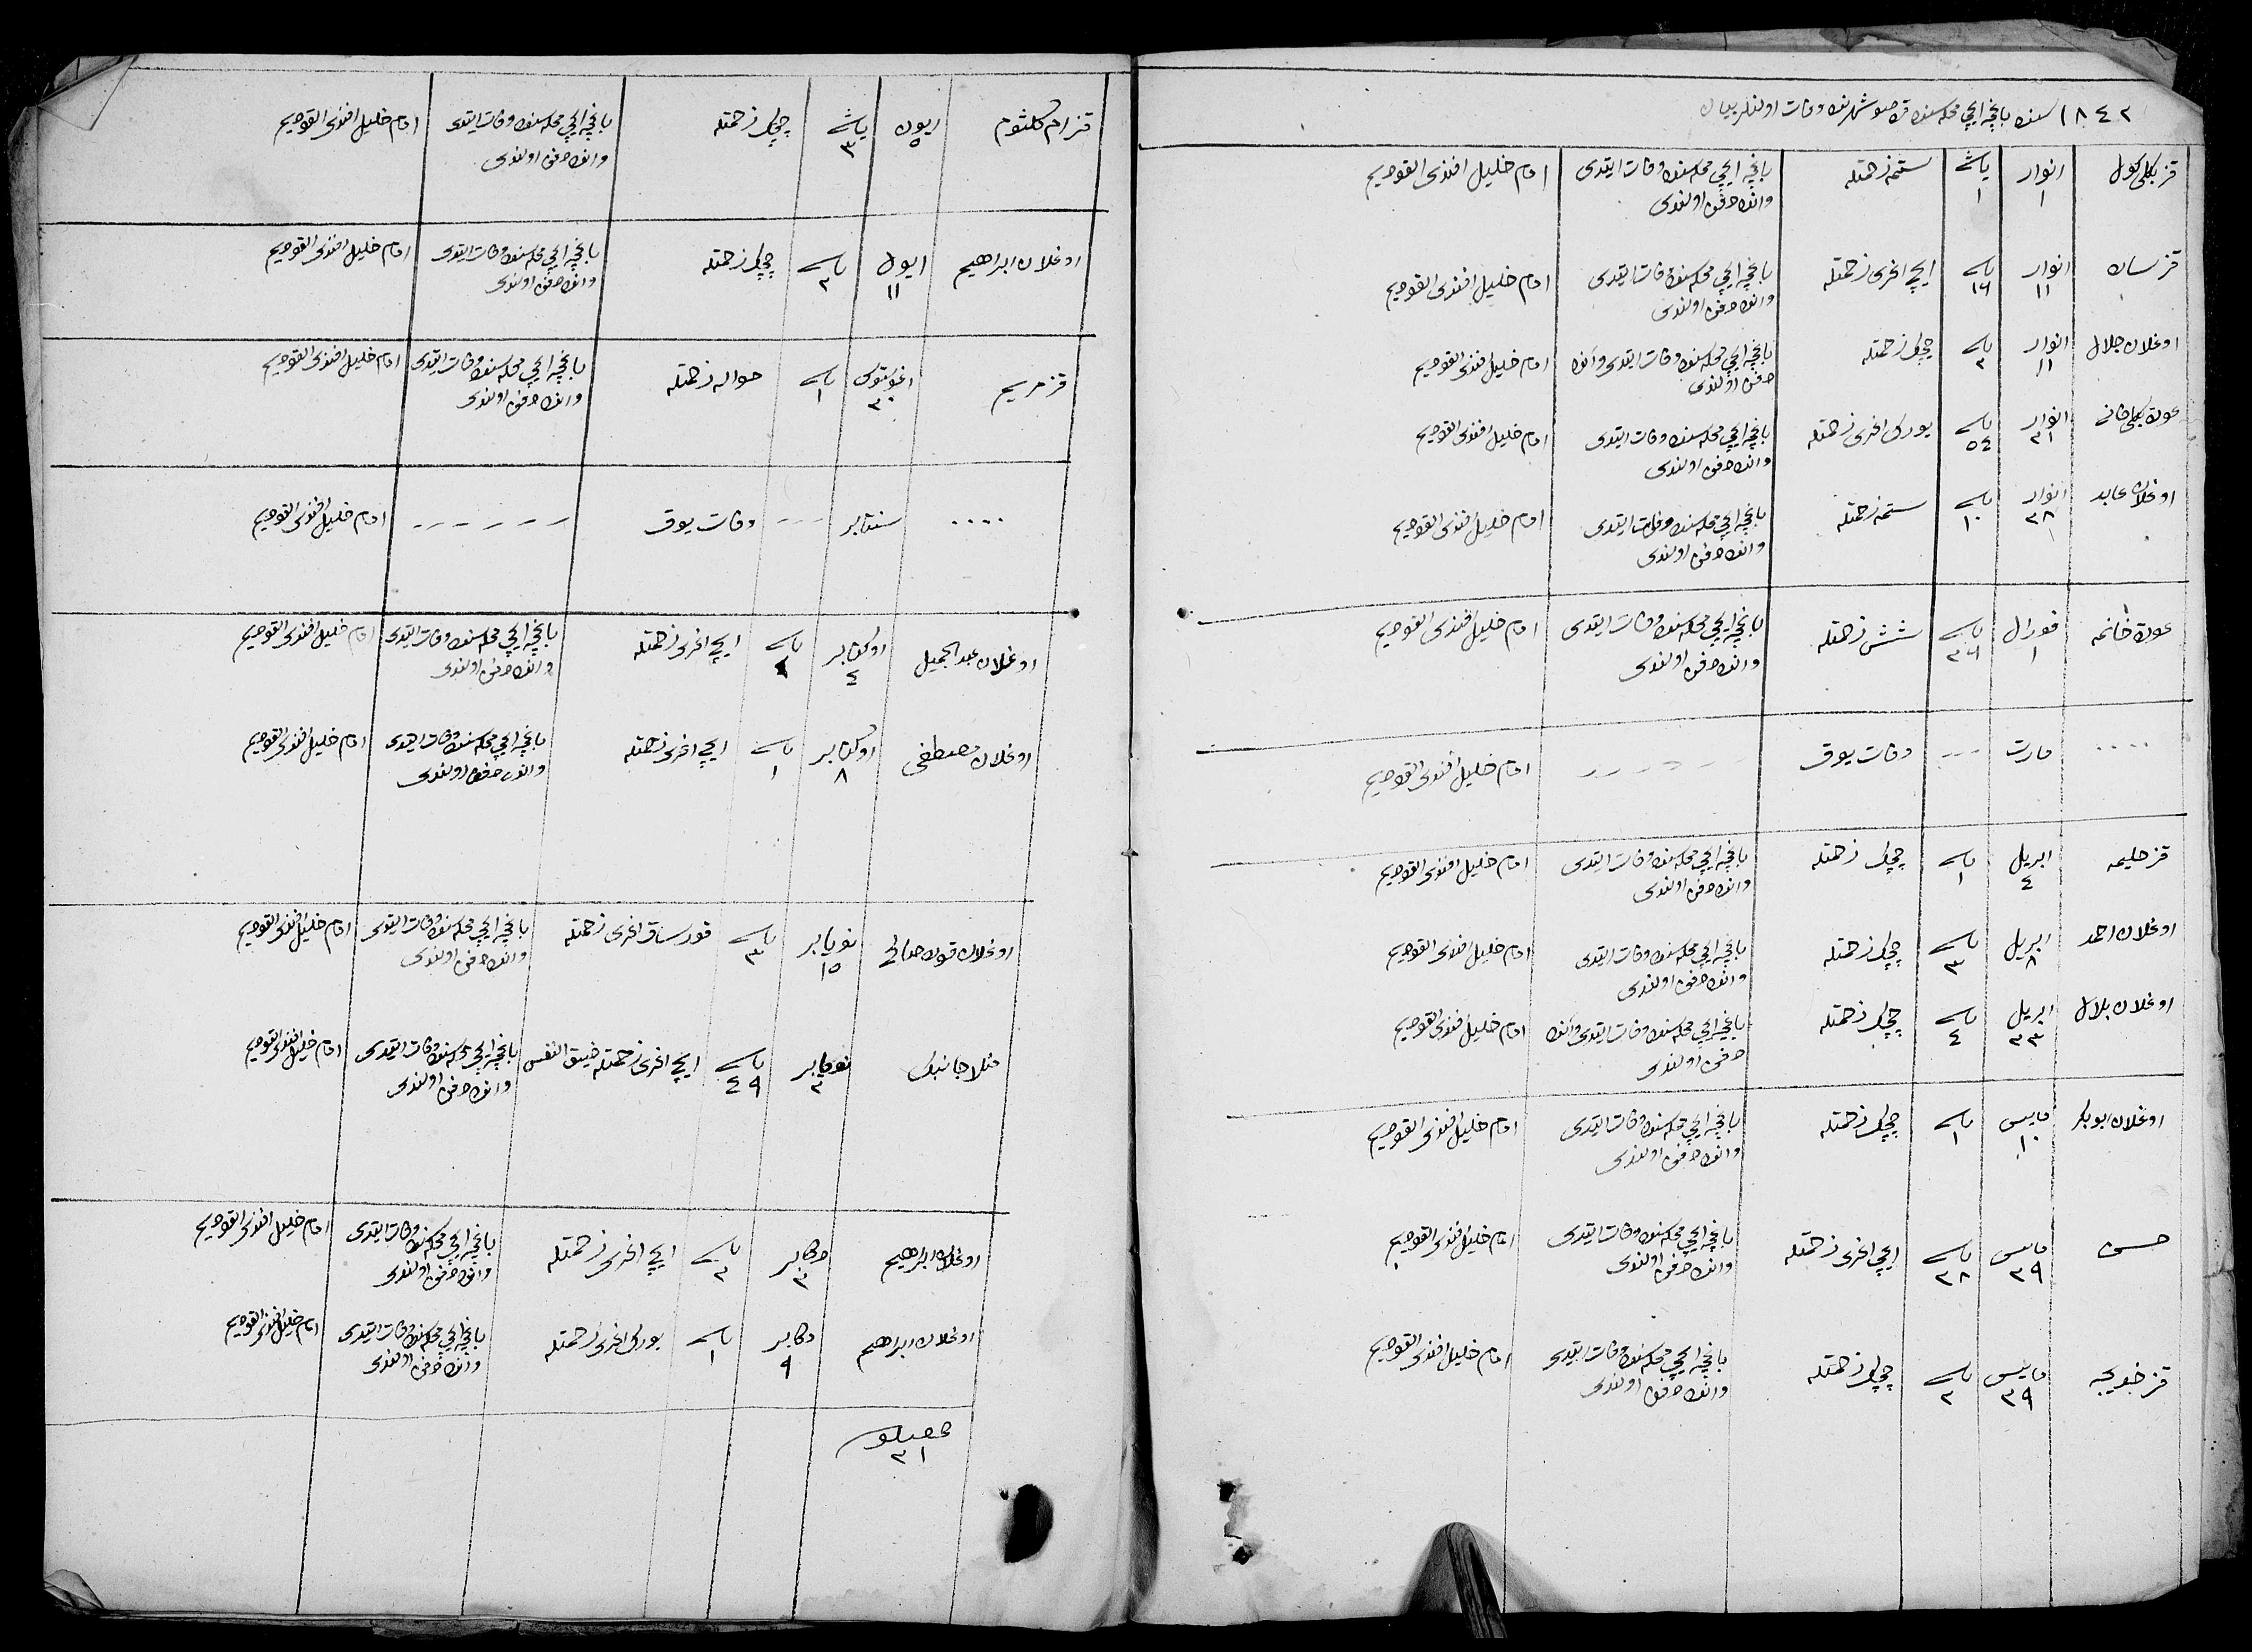 ١٨٤٢ سنه باغچه ایچی محله سنده قره صو شهرنده وفات اولنلر بیان
قز بکلی کول انوار ١ یاشی ١ ستمه زحمتله باغچه ایچی محله سنده وفات ایتدی امام خلیل افندی القوجیم
وانده دفن اولندی
قز سان انوار ١١ یاشی ١٦ ایچ اغری زحمتله باغچه ایچی محله سنده وفات ایتدی امام خلیل افندی القوجیم
وانده دفن اولندی
اوغلان جلال انوار ١١ یاشی ٢ چچک زحمتله باغچه ایچی محله سنده وفات ایتدی وانده امام خلیل افندی القوجیم
دفن اولندی
عورة انوار ٣١ یاشی ٥٤ یورک اغری زحمتله باغچه ایچی محله سنده وفات ایتدی امام خلیل افندی القوجیم
وانده دفن اولندی
اوغلان عابد انوار ٣٨ یاشی ١٠ ستمه زحمتله باغچه ایچی محله سنده وفات ایتدی امام خلیل افندی القوجیم
وانده دفن اولندی
عورة خانمه فورال ١ یاشی ٣٦ شش زحمتله باغچه ایچی محله سنده وفات ایتدی امام خلیل افندی القوجیم
وانده دفن اولندی
.... مارت --- وفات یوق ------ امام خلیل افندی القوجیم
قز حلیمه ابریل ٤ یاشی ١ چچک زحمتله باغچه ایچی محله سنده وفات ایتدی امام خلیل افندی القوجیم
وانده دفن اولندی
اوغلان احمد ابریل ٨ یاشی ٣ چچک زحمتله باغچه ایچی محله سنده وفات ایتدی امام خلیل افندی القوجیم
وانده دفن اولندی
اوغلان بلال ابریل ٢٣ یاشی ٤ چچک زحمتله باغچه ایچی محله سنده وفات ایتدی وانده امام خلیل افندی القوجیم
دفن اولندی
اوغلان ابوبکر مایس ١٠ یاشی ١ چچک زحمتله باغچه ایچی محله سنده وفات ایتدی امام خلیل افندی القوجیم
وانده دفن اولندی
حسن مایس ٢٩ یاشی ٢٨ ایچ اغری زحمتله باغچه ایچی محله سنده وفات ایتدی امام خلیل افندی القوجیم
وانده دفن اولندی
قز خدیجه مایس ٢٩ یاشی ٢ چچک زحمتله باغچه ایچی محله سنده وفات ایتدی امام خلیل افندی القوجیم
وانده دفن اولندی
قز ام کلثوم ایون ٥ یاشی ٣ چچک زحمتله باغچه ایچی محله سنده وفات ایتدی امام خلیل افندی القوجیم
وانده دفن اولندی
اوغلان ابراهیم ایول ١١ یاشی ٢ چچک زحمتله باغچه ایچی محله سنده وفات ایتدی امام خلیل افندی القوجیم
وانده دفن اولندی
قز مریم اغوستوس ٣٠ یاشی ١ حواله زحمتله باغچه ایچی محله سنده وفات ایتدی امام خلیل افندی القوجیم
وانده دفن اولندی
.... سنتابر --- وفات یوق ------ امام خلیل افندی القوجیم
اوغلان عبدالجمیل اوکتابر ٤ یاشی ایچ اغری زحمتله باغچه ایچی محله سنده وفات ایتدی امام خلیل افندی القوجیم
وانده دفن اولندی
اوغلان مصطفی اوکتابر ٨ یاشی ١ ایچ اغری زحمتله باغچه ایچی محله سنده وفات ایتدی امام خلیل افندی القوجیم
وانده دفن اولندی
اوغلان نویابر ١٥ یاشی ٣ قورساق اغری زحمتله باغچه ایچی محله سنده وفات ایتدی امام خلیل افندی القوجیم
وانده دفن اولندی
منلا جانبک نویابر ٢ یاشی ٤٩ ایچ اغری زحمتله ضیق النفس باغچه ایچی محله سنده وفات ایتدی امام خلیل افندی القوجیم
وانده دفن اولندی
اوغلان ابراهیم دکابر ٣ یاشی ٢ ایچ اغری زحمتله باغچه ایچی محله سنده وفات ایتدی امام خلیل افندی القوجیم
وانده دفن اولندی
اوغلان ابراهیم دکابر ٩ یاشی ١ یورک اغری زحمتله باغچه ایچی محله سنده وفات ایتدی امام خلیل افندی القوجیم
وانده دفن اولندی
٢١